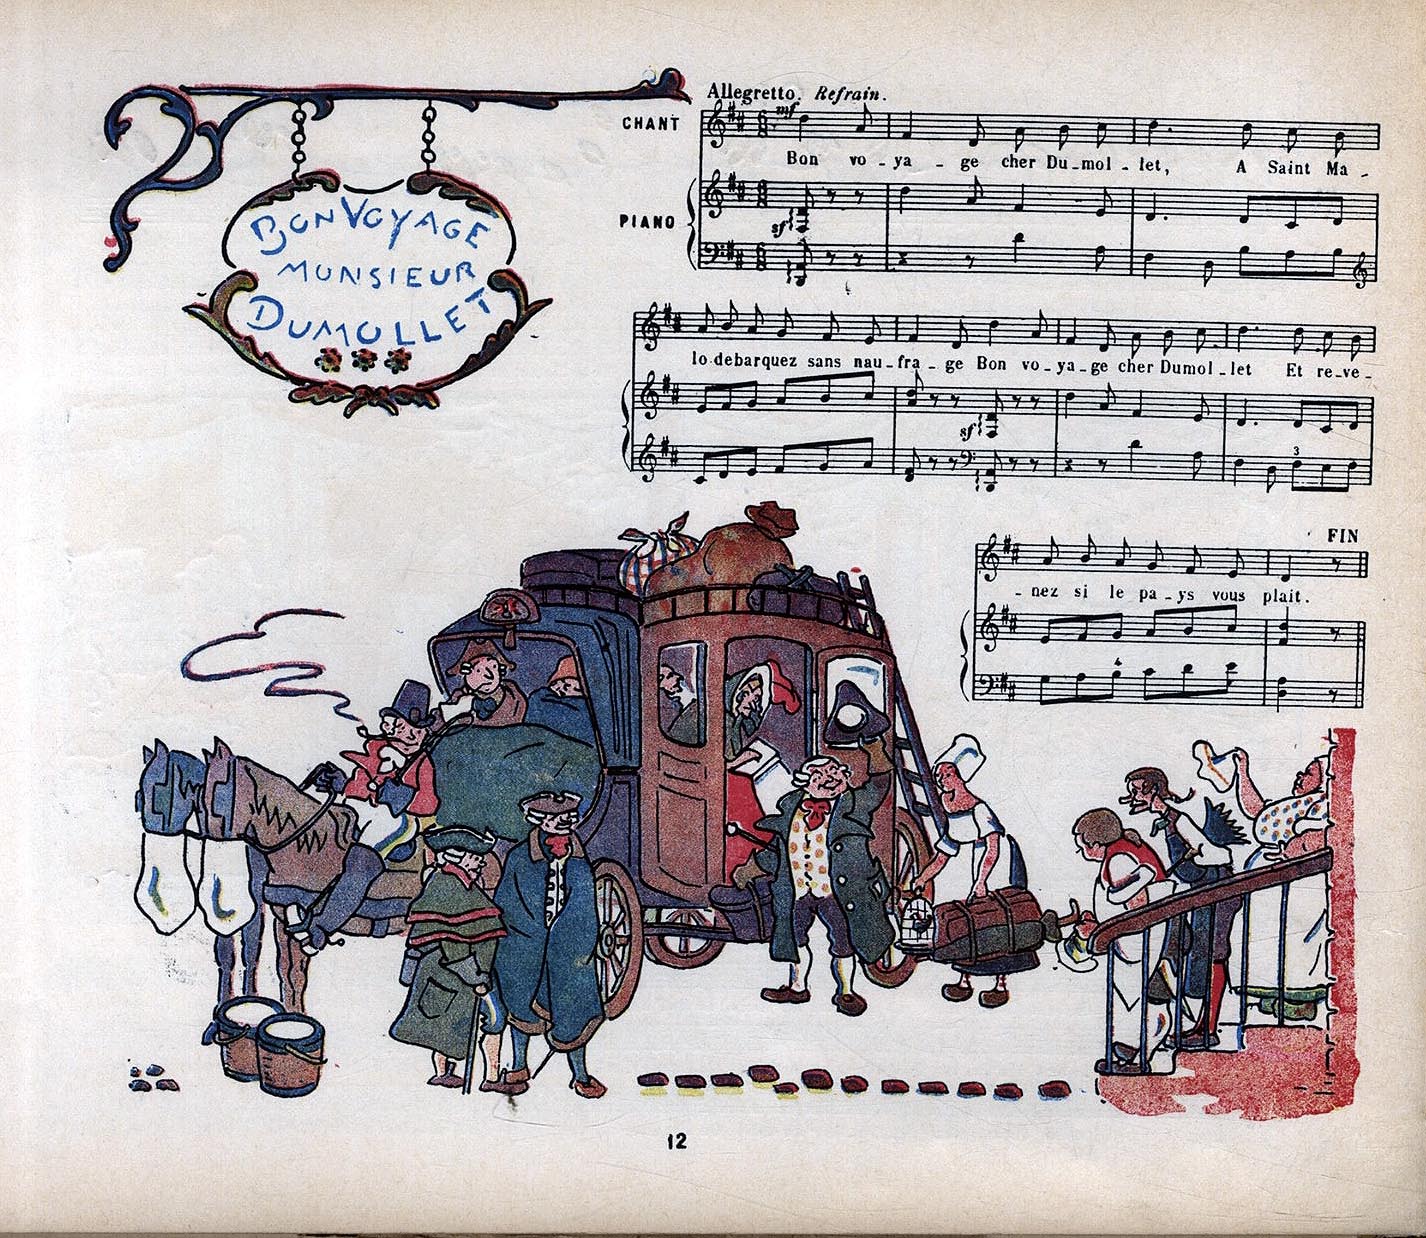 BON VOYAGE
MONSIEUR
DUMOLLET
Allegretto. Refrain.
mf
CHANT
Bon vo - ya - ge cher Du - mol - let, A Saint Ma -
PIANO
sf
lo debarquez sans nau - fra - ge Bon vo - ya - ge cher Dumol - let Et re - ve -
sf
3
FIN
- nez si le pa - ys vous plait.
12